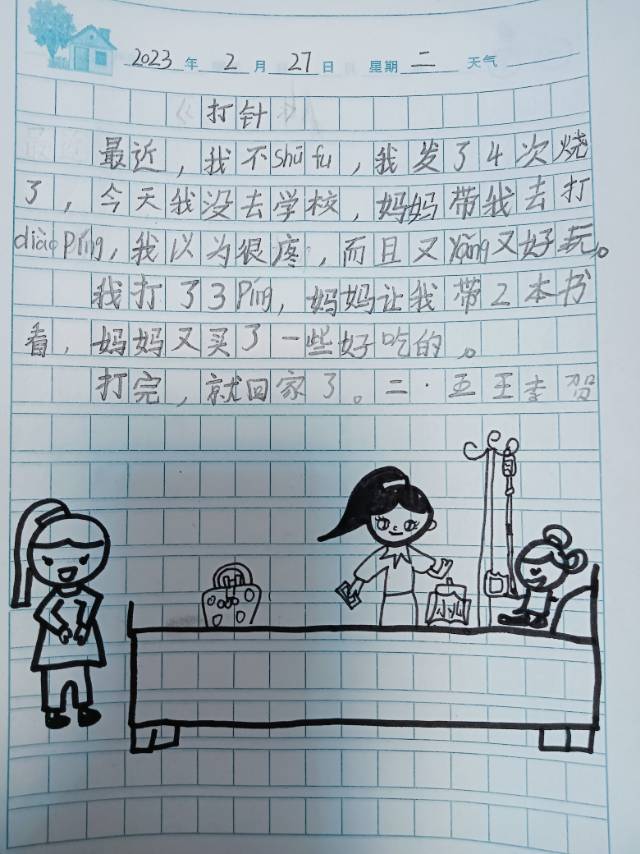 2023 年 2 月 27 日 星期 二 天气
《打针》
最近，我不shū fu，我发了4次烧
了，今天我没去学校，妈妈带我去打
diào píng，我以为很疼，而且又yǎng又好玩。
我打了3píng，妈妈让我带2本书
看，妈妈又买了一些好吃的。
打完，就回家了。二·五王李贺